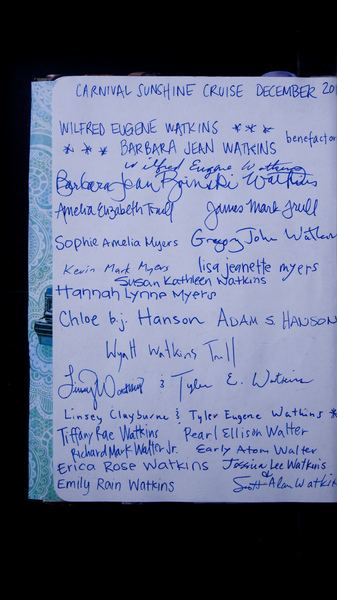 CARNIVAL SUNSHINE CRUISE DECEMBER 20
WILFRED EUGENE WATKINS ***
*** BARBARA JEAN WATKINS benefactor
Wilfred Eugene Watkins
Barbara Jean Watkins
Amelia Elizabeth Trull James Mark Trull
Sophie Amelia Myers Gregory John Watkin
Kevin Mark Myers lisa jeannette myers
Susan Kathleen Watkins
Hannah Lynne Myers
Chloe b.j. Hanson ADAM S. HANSON
Wyatt Watkins Trull
& Tyler E. Watkins
Linsey Clayburne & Tyler Eugene Watkins *
Tiffany Rae Watkins Pearl Ellison Walter
Richard Mark Walter Jr. Early Atom Walter
Erica Rose Watkins Jessica Lee Watkins
&
Emily Rain Watkins Scott Alan Watkin